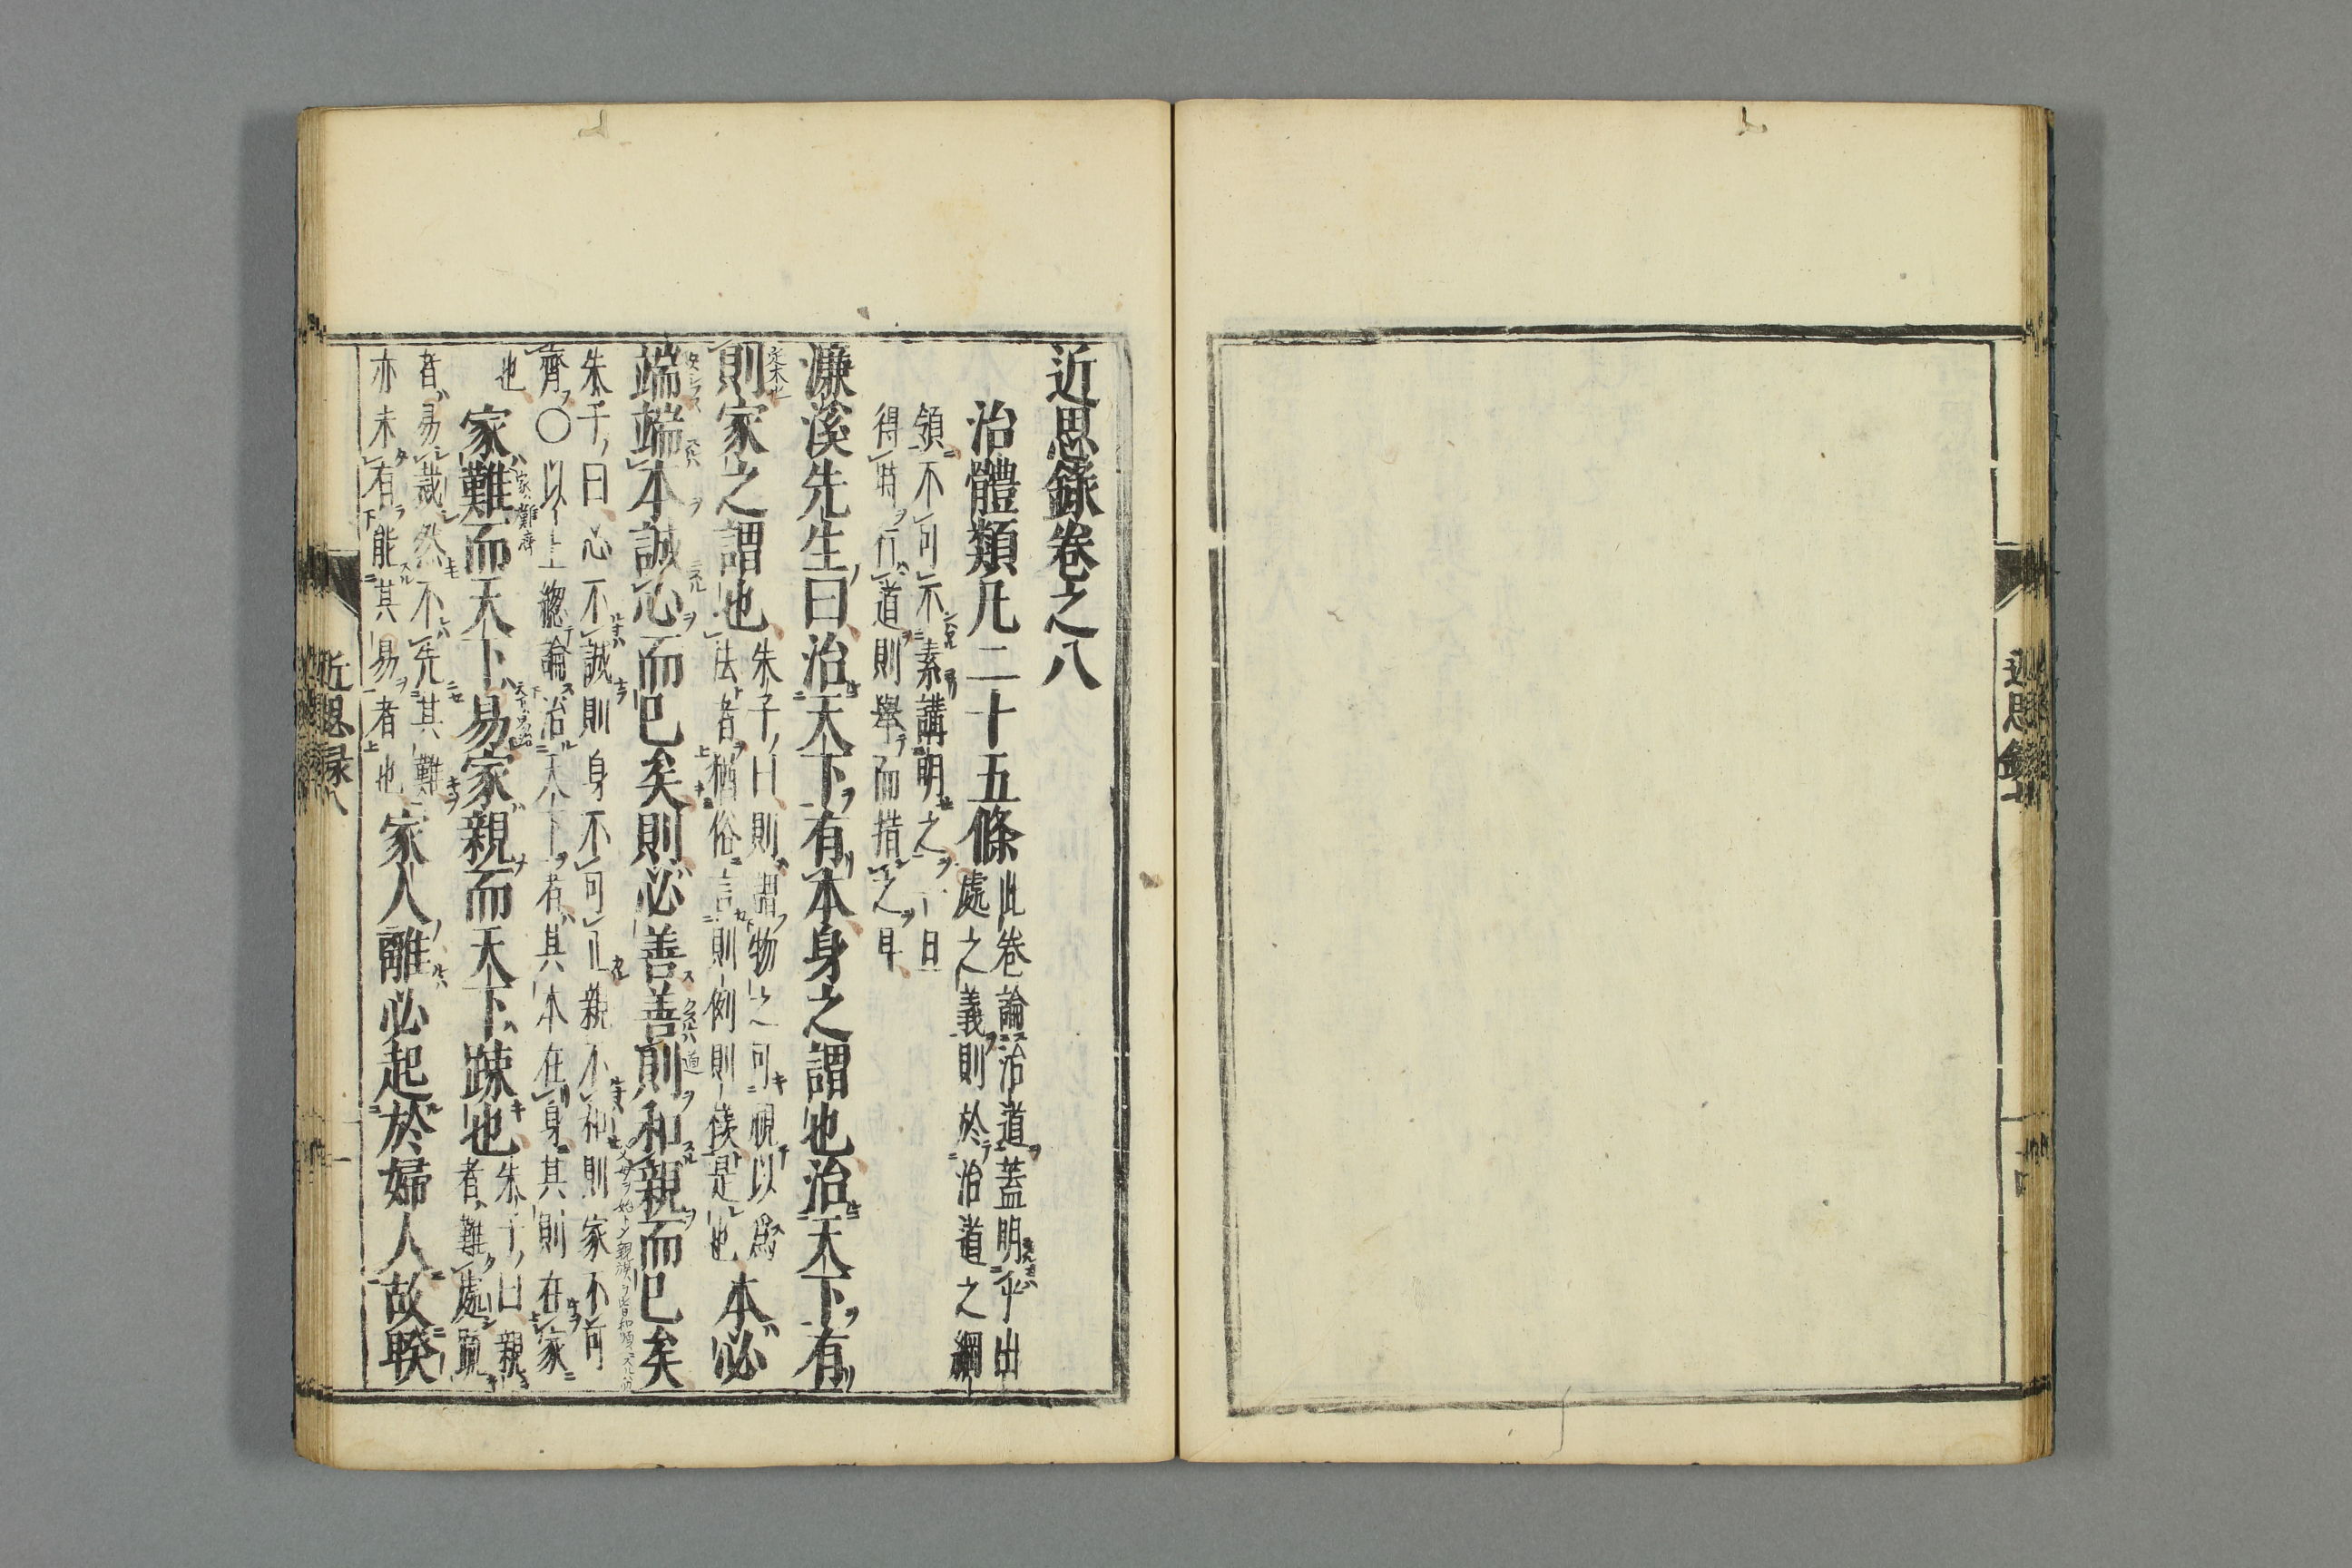 近思錄卷之八
治體類凡二十五條
此卷論治道蓋明乎出
處之義則於治道之綱
領不可不素講明之一旦
得時行道則舉而措之耳
濂溪先生曰治天下有本身之謂也治天下有
則家之謂也
朱子曰則謂物之可視以爲
法者猶俗言則例則樣是也
本必
端端本誠心而已矣則必善善則和親而已矣
朱子曰心不誠則身不可正親不和則家不可
齊○以上總論治天下者其本在身其則在家
也
家難而天下易家親而天下疎也
朱子曰親
者難處疎
者易裁然不先其難
亦未有能其易者也
家人離必起於婦人故睽
近思録八
一
近思錄七